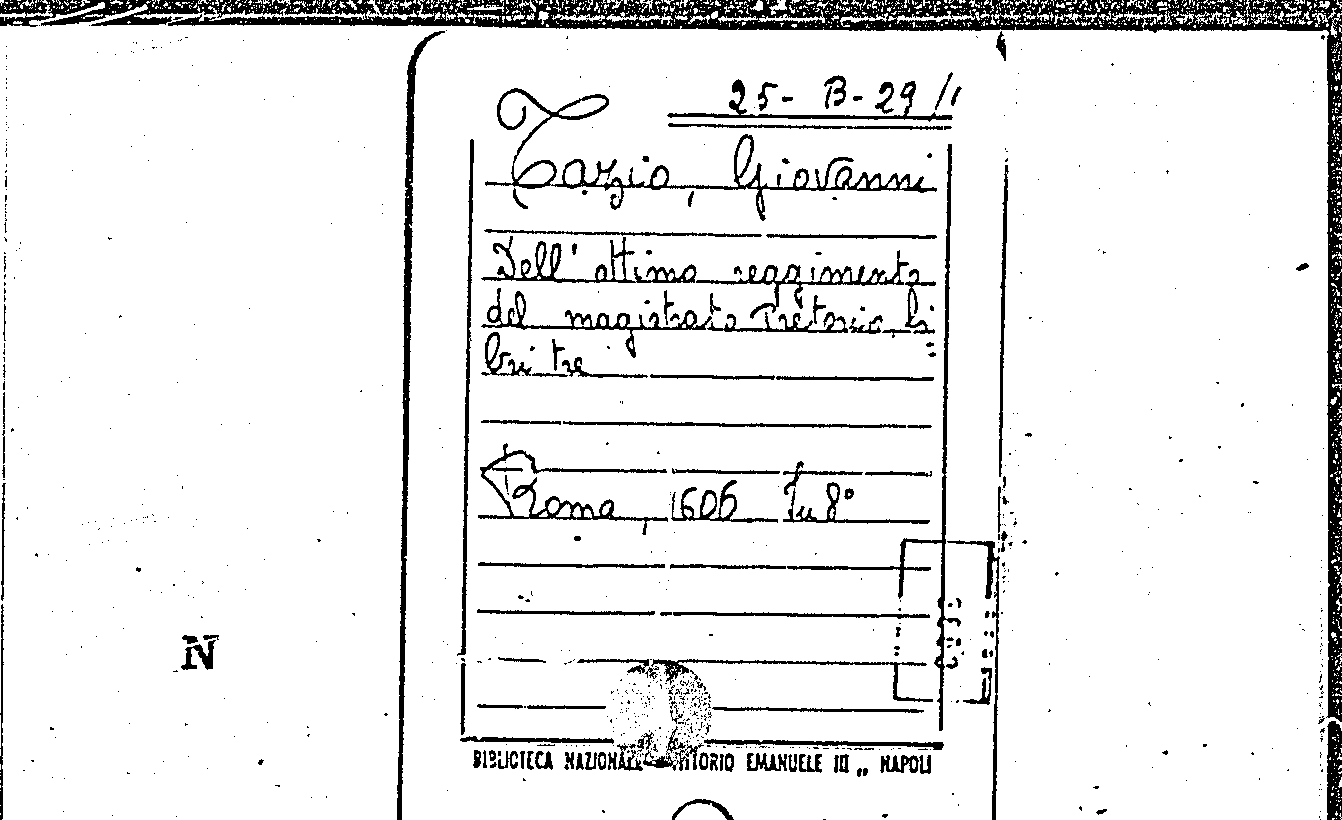 25- B-29/1
Tazio, Giovanni
Dell' ottimo reggimento
del magistrato Pretorio, li
bri tre
Roma, 1606 In 8°
N
BIBLIOTECA NAZIONALE VITTORIO EMANUELE III „ NAPOLI